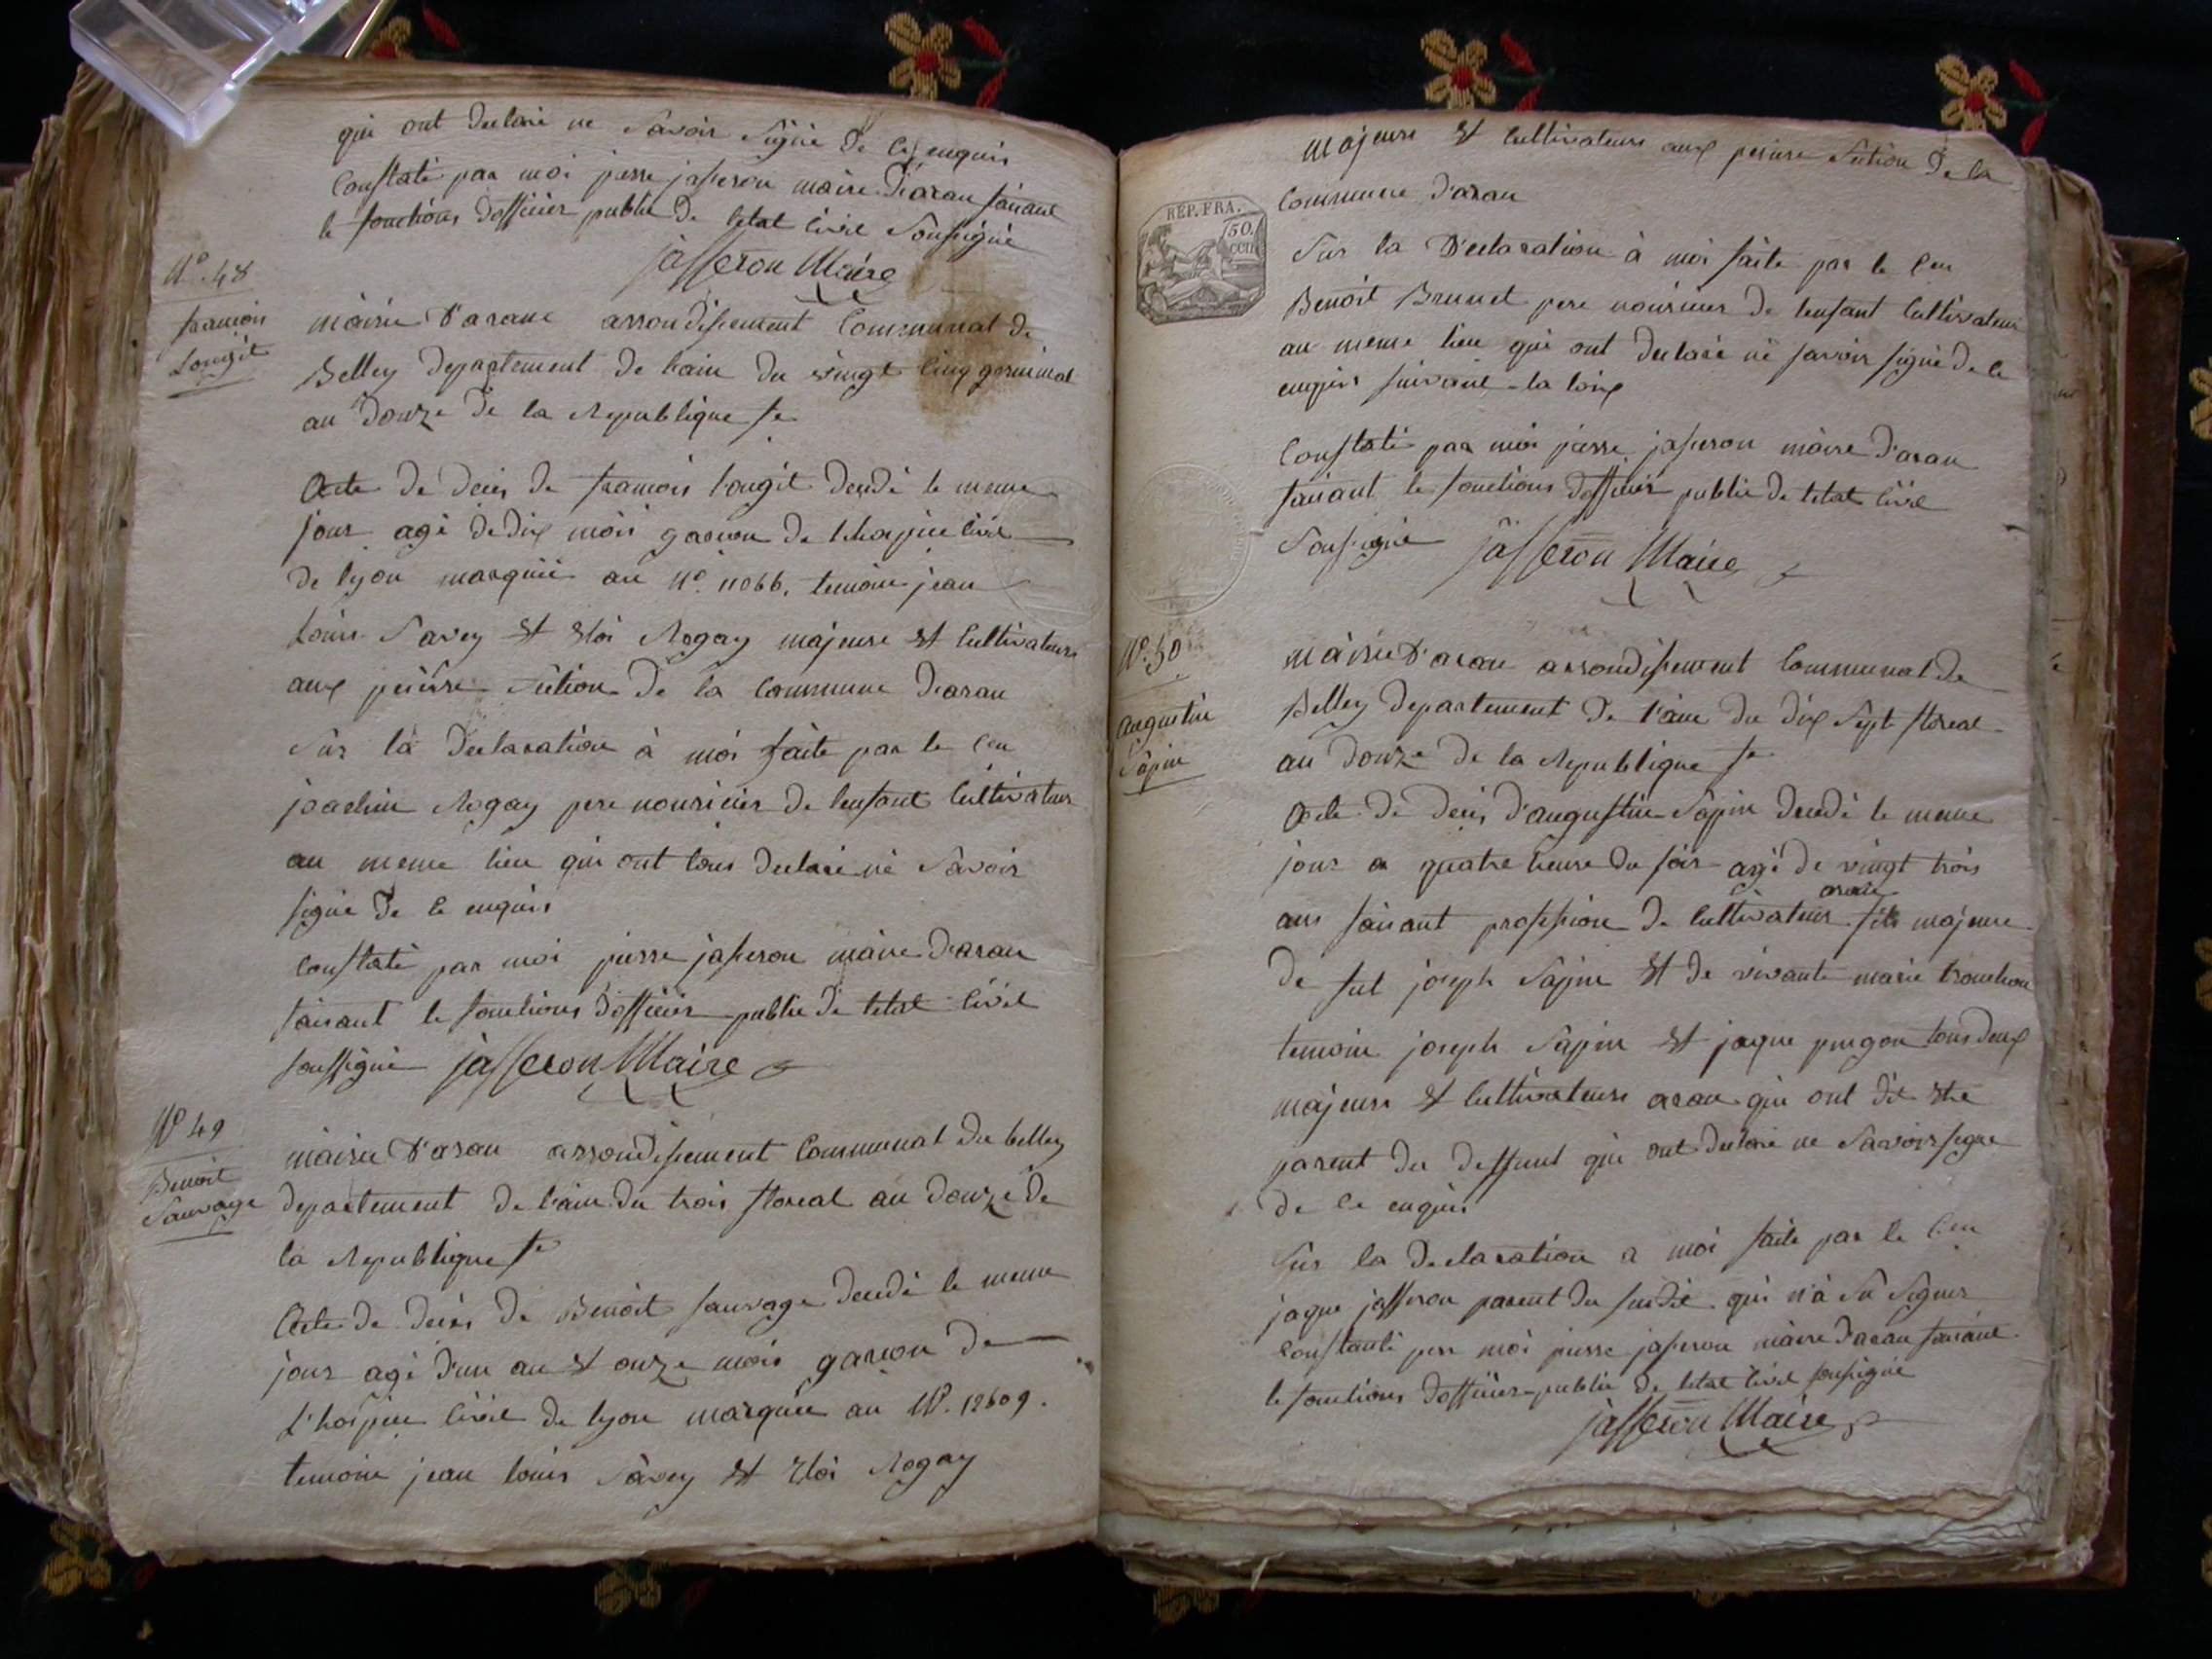 qui ont declaré ne savoir signé de ce enquis
Constaté par moi pierre jasseron maire d'aran faisant
le fonctions d'officier public de letat civil soussigné
jasseron Maire
N°. 48
francois
Longit
mairie d'arane arrondissement Communal de
Belley departement de l'ain du vingt cinq germinal
an douze de la Republique fse
Acte de deces de francois longit decedé le meme
jour agé de dix mois garcon de l'hospice civil
de lyon marquéé au N°. 11066. temoin jean
louis Savey et eloi Rogay majeure et Cultivateurs
aux peisse section de la commune d'aran
Sur la declaration à moi faite par le Cen
joachin Rogay pere nouricier de lenfant Cultivateur
au meme lieu qui ont tous declaré né savoir
signé de ce enquis
Constaté par moi pierre jasseron maire d'aran
faisant le fonctions d'officier public de letat civil
soussigné jasseron Maire
N° 49
Benoit
Sauvage
mairie d'aran arrondissement Communal du belley
departement de l'ain du trois floreal an douze de
la Republique fse
Acte de deces de Benoit sauvage decedé le meme
jour agé d'un an et onze mois garcon de
l'hospice civil de lyon marquée au N°. 12609.
temoin jean louis Savey et eloi Rogay
majeure et Cultivateurs aux section de la
Commune d'aran
REP. FRA.
50.
cen
Sur la Declaration à moi faite par le Cen
Benoit Brunet pere nouricier de lenfant Cultivateur
au meme lieu qui ont declaré né savoir signé de ce
enquis suivant la loix
Constaté par moi pierre jasseron maire d'aran
faisant le fonctions d'officier public de letat civil
Soussigné jasseron Maire
N°. 50
augustin
Sapin
mairie d'aran arrondissement Communal de
Belley departement de l'ain du dix sept floreal
an Douze de la Republique fse
Acte de deces d'augustin Sapin decedé le meme
jour a quatre heure du soir agé de vingt trois
aran
ans faisant profession de Cultivateur fils majeure
de fut joseph Sapin et de vivante marie tronchon
temoin joseph Sapin et jaque pingon tous deux
majeurs et Cultivateurs aran qui ont dit etre
parent du deffunt qui ont declaré ne savoir signe
de ce enquis
Sur la Declaration a moi faite par le Cen
jaque jasseron parent du susdit qui n'à su signer
Constanté par moi pierre jasseron maire d'aran faisant
le fonctions d'officier public de letat civil soussigné
jasseron Maire